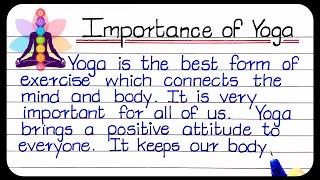 Importance of Yoga
Yoga is the best form of
exercise which connects the
mind and body. It is very
important for all of us. Yoga
brings a positive attitude to
everyone. It keeps our body